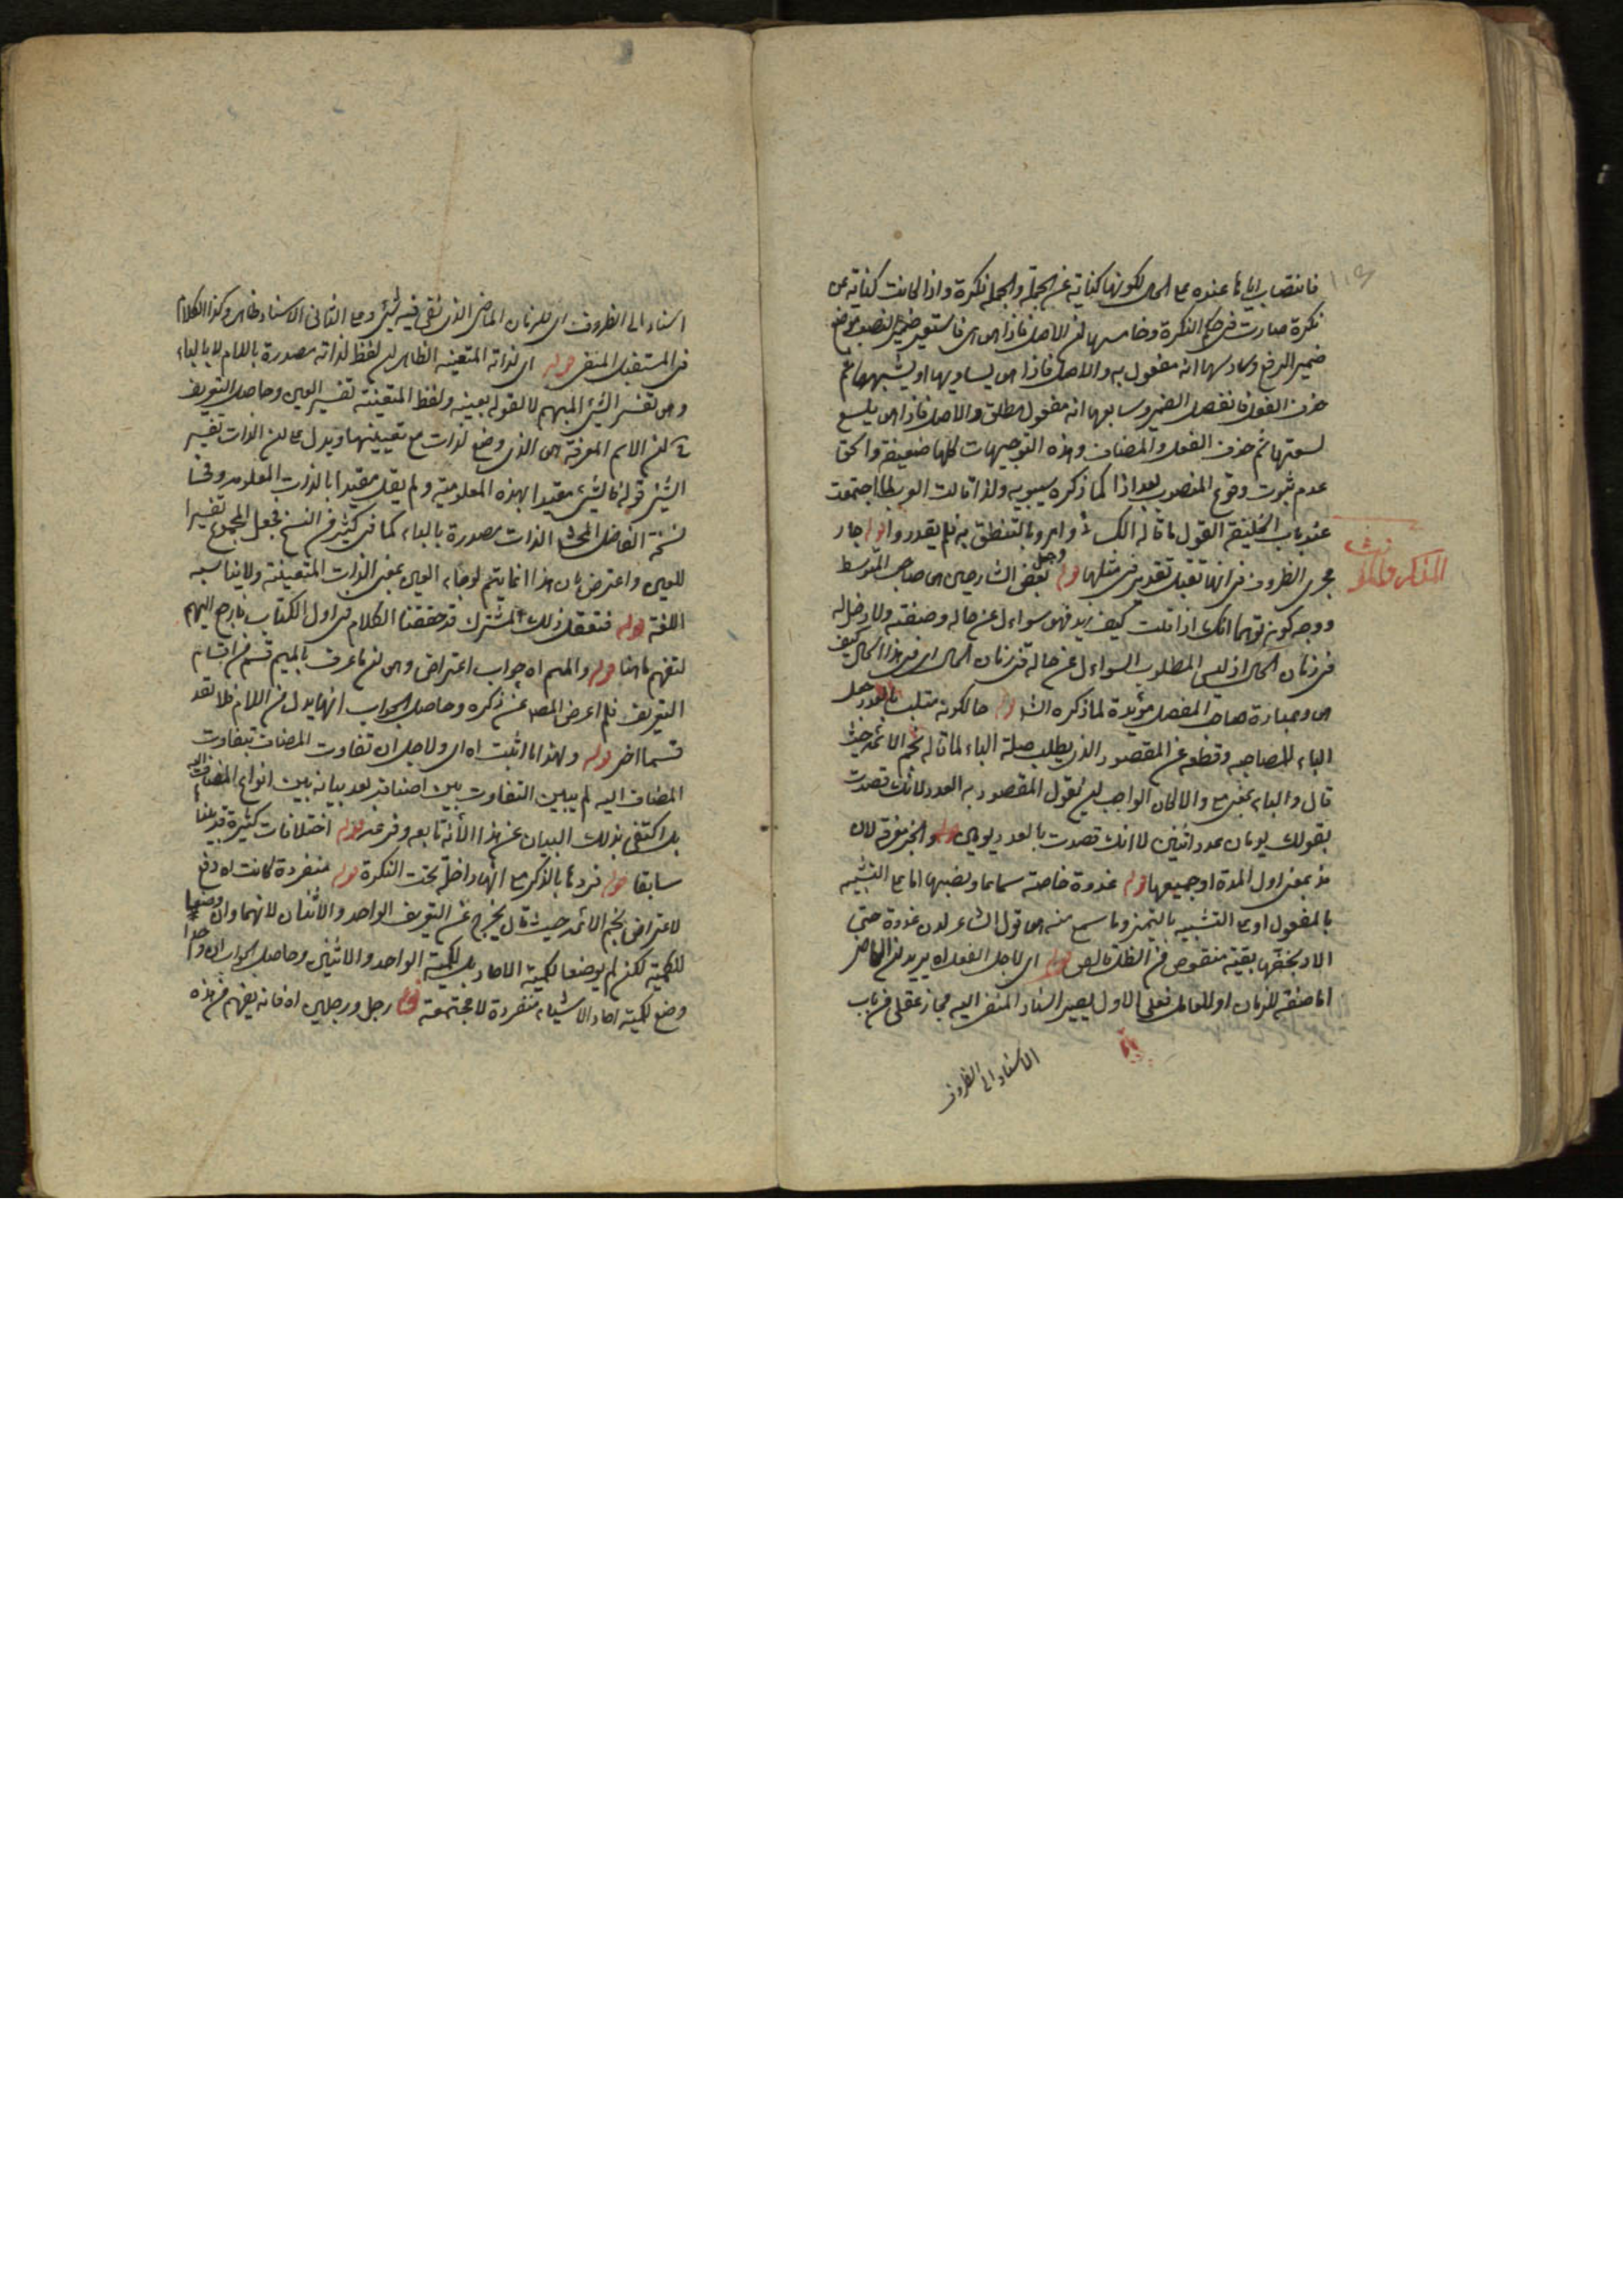 فانتصاب اياها عنده على الحال لكونها كناية عن الجملة والجملة نكرة واذا كانت كناية عن
نكرة صارت في حكم النكرة وخامسها ان الاصل فاذا هي هي فاستعير ضمير النصب موضع
ضمير الرفع وسادسها انه مفعول به والاصل فاذا هي يساويها او يشبهها ثم
حذف الفعل فانفصل الضمير وسابعها انه مفعول مطلق والاصل فاذا هي يلسع
لسعتها ثم حذف الفعل والمضاف وهذه التوجيهات كلها ضعيفة والحق
عدم ثبوت وقوع المنصوب بعد اذا كما ذكره سيبويه ولذا قالت العرب لما اجتمعت
عند باب الخليفة القول ما قاله الكسائي وامروا بالتنطق به فلم يقدروا قوله جار
مجرى الظروف في انها تقبل تقدير في مثلها قوله وجعل بعض الشارحين هي صاحب المتوسط
ووجه كونه توهما انك اذا قلت كيف زيد فهو سواءل عن حاله وصفته ولا دخل له
في زمان الحال اذ ليس المطلوب السواءل عن حاله في زمان الحال اي في هذا الحال كيف
هي وعبارة صاحب المفصل مؤيدة لما ذكره الش قوله حالكونه متلبسا بالعدد جعل
الباء للمصاحبة وقطعه عن المقصود الذي يطلب صلة الباء لما قاله نجم الائمة حيث
قال والباء بمعنى مع والا لكان الواجب ان يقول المقصود به العدد لانك قصدت
بقولك يومان عدد اثنين لا انك قصدت بالعدد يومين قوله والخبر معرفة لان
مذ بمعنى اول المدة او جميعها قوله غدوة خاصة سماعا ونصبها اما على التشبيه
بالمفعول او على التشبيه بالتميز وما سمع منه هي قول الشاعر لدن غدوة حتى
الاذ بخفها بقية منقوص من الظل قالص قوله اي لاجل الفعل اه يريد ان الماضي
اما صفة للزمان او للفاعل فعلى الاول يصير اسناد المنفي اليه مجاز عقلي من باب
الاسناد الى الظروف
اسناد الى الظروف اي للزمان الماضي الذي نفي فيه لشيء وعلى الثاني الاسناد ظاهر وكذا الكلام
في المستقبل المنفي قوله اي لذاته المتعينة الظاهر ان لفظ لذاته مصدرة باللام لا بالباء
وهي تفسير الشيء المبهم لا لقوله بعينه ولفظ المتعينة تفسير العين وحاصل التعريف
ان الاسم المعرفة هي الذي وضع لذات مع تعيينها ويدل على ان الذات تفسير
الشيء قوله فالشيء مقيدا بهذه المعلومية ولم يقل مقيدا بالذات المعلومة وفي
نسخة الفاضل المحشي الذات مصدرة بالباء كما في كثير من النسخ فجعل المجموع تفسيرا
للعين واعترض بان هذا انما يتم لو جاء العين بمعنى الذات المتعينة ولا يناسبه
اللغة قوله فتعقل ذلك المشترك قد حققنا الكلام في اول الكتاب فارجع اليهم
لتفهم ما هنا قوله والميم اه جواب اعتراض وهي ان ما عرف بالميم قسم من اقسام
التعريف فلم اعرض المصنف عن ذكره وحاصل الجواب انها بدل من اللام فلا تعد
قسما اخر قوله ولهذا ما اثبت اه اي ولاجل ان تفاوت المضاف بتفاوت
المضاف اليه لم يبين التفاوت بين اصنافه بعد بيانه بين انواع المضاف اليه
بل اكتفى بذلك البيان عن هذا لانه تابعه وفرعه قوله اختلافات كثيرة قد بينا
سابقا قوله فردها بالذكر مع انها داخلة تحت النكرة قوله منفردة كانت اه دفع
لاعتراض نجم الائمة حيث قال يخرج عن التعريف الواحد والاثنان لانهما وان وضعا
للكمية لكن لم يوضعا لكمية الاحاد بل لكمية الواحد والاثنين وحاصل الجواب
وضع لكمية احاد الاشياء منفردة لا مجتمعة قوله رجل ورجلين اه فانه يفهم من هذه